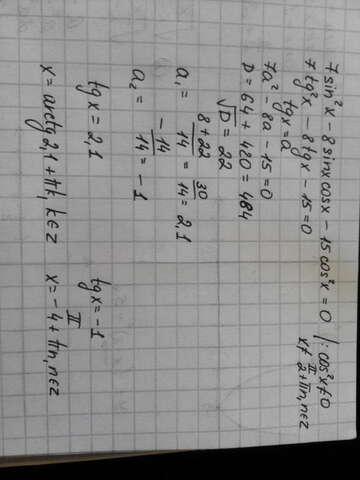 7sin²x - 8 sinx cosx - 15 cos²x = 0 |: cos²x≠0
7tg²x - 8tgx - 15 = 0
x ≠ π/2 + πn, n∈z
tgx = a
7a² - 8a - 15 = 0
D = 64 + 420 = 484
√D = 22
a₁ = (8+22)/14 = 30/14 = 2,1
a₂ = -14/14 = -1
tgx = 2,1
tgx = -1
x = arctg 2,1 + πk, k∈z
x = -π/4 + πn, n∈z